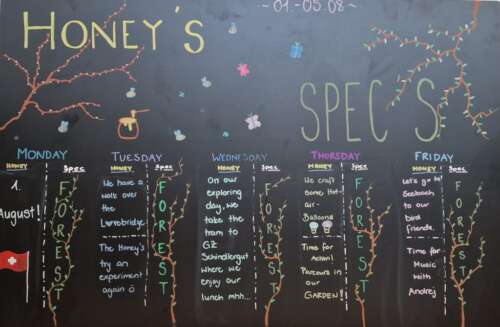 ~ 01.-05.08 ~
HONEY'S
SPEC'S
MONDAY
HONEY
Spec
1.
August!
FOREST
TUESDAY
HONEY
Spec
We have a
walk over
the
Lorrebridge.
The Honey's
try an
experiment
again
FOREST
WEDNESDAY
HONEY
Spec
On our
exploring
day, we
take the
tram to
GZ
Schindlergut
where we
enjoy our
lunch mhh...
FOREST
THURSDAY
HONEY
Spec
We craft
some Hot-
air-
Balloons
Time for
Action!
Parcours in
our
GARDEN!
FOREST
FRIDAY
HONEY
Spec
Let's go by
to our
bird
friends.
Time for
Music
with
Andrej
FOREST